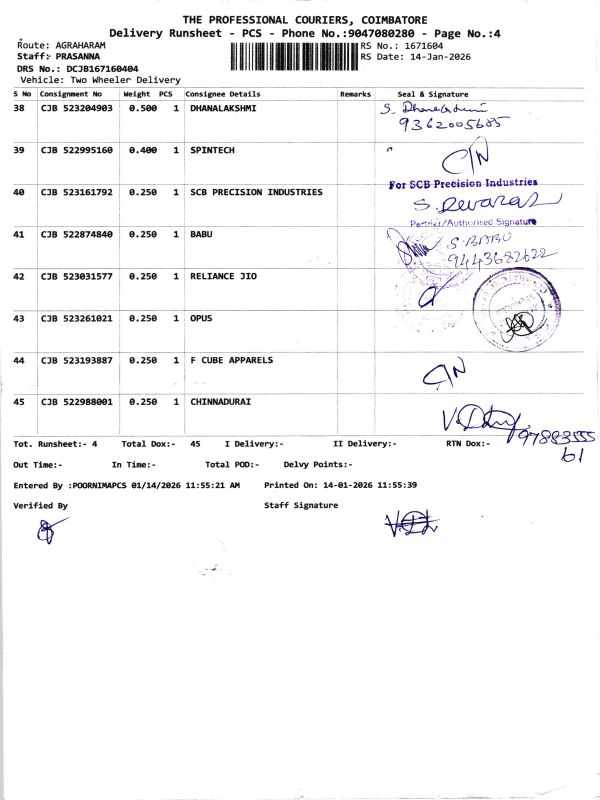 THE PROFESSIONAL COURIERS, COIMBATORE
Delivery Runsheet - PCS - Phone No.:9047080280 - Page No.:4
Route: AGRAHARAM RS No.: 1671604
Staff:- PRASANNA RS Date: 14-Jan-2026
DRS No.: DCJB167160404
Vehicle: Two Wheeler Delivery
S No Consignment No Weight PCS Consignee Details Remarks Seal & Signature
38 CJB 523204903 0.500 1 DHANALAKSHMI S. Dhanalakshmi
9362005685
39 CJB 522995160 0.400 1 SPINTECH C/N
For SCB Precision Industries
40 CJB 523161792 0.250 1 SCB PRECISION INDUSTRIES S. Devaraj
Partner/Authorised Signature
41 CJB 522874840 0.250 1 BABU S. BABU
9443682622
42 CJB 523031577 0.250 1 RELIANCE JIO
43 CJB 523261021 0.250 1 OPUS
44 CJB 523193887 0.250 1 F CUBE APPARELS C/N
45 CJB 522988001 0.250 1 CHINNADURAI
97883555
61
Tot. Runsheet:- 4 Total Dox:- 45 I Delivery:- II Delivery:- RTN Dox:-
Out Time:- In Time:- Total POD:- Delvy Points:-
Entered By :POORNIMAPCS 01/14/2026 11:55:21 AM Printed On: 14-01-2026 11:55:39
Verified By Staff Signature